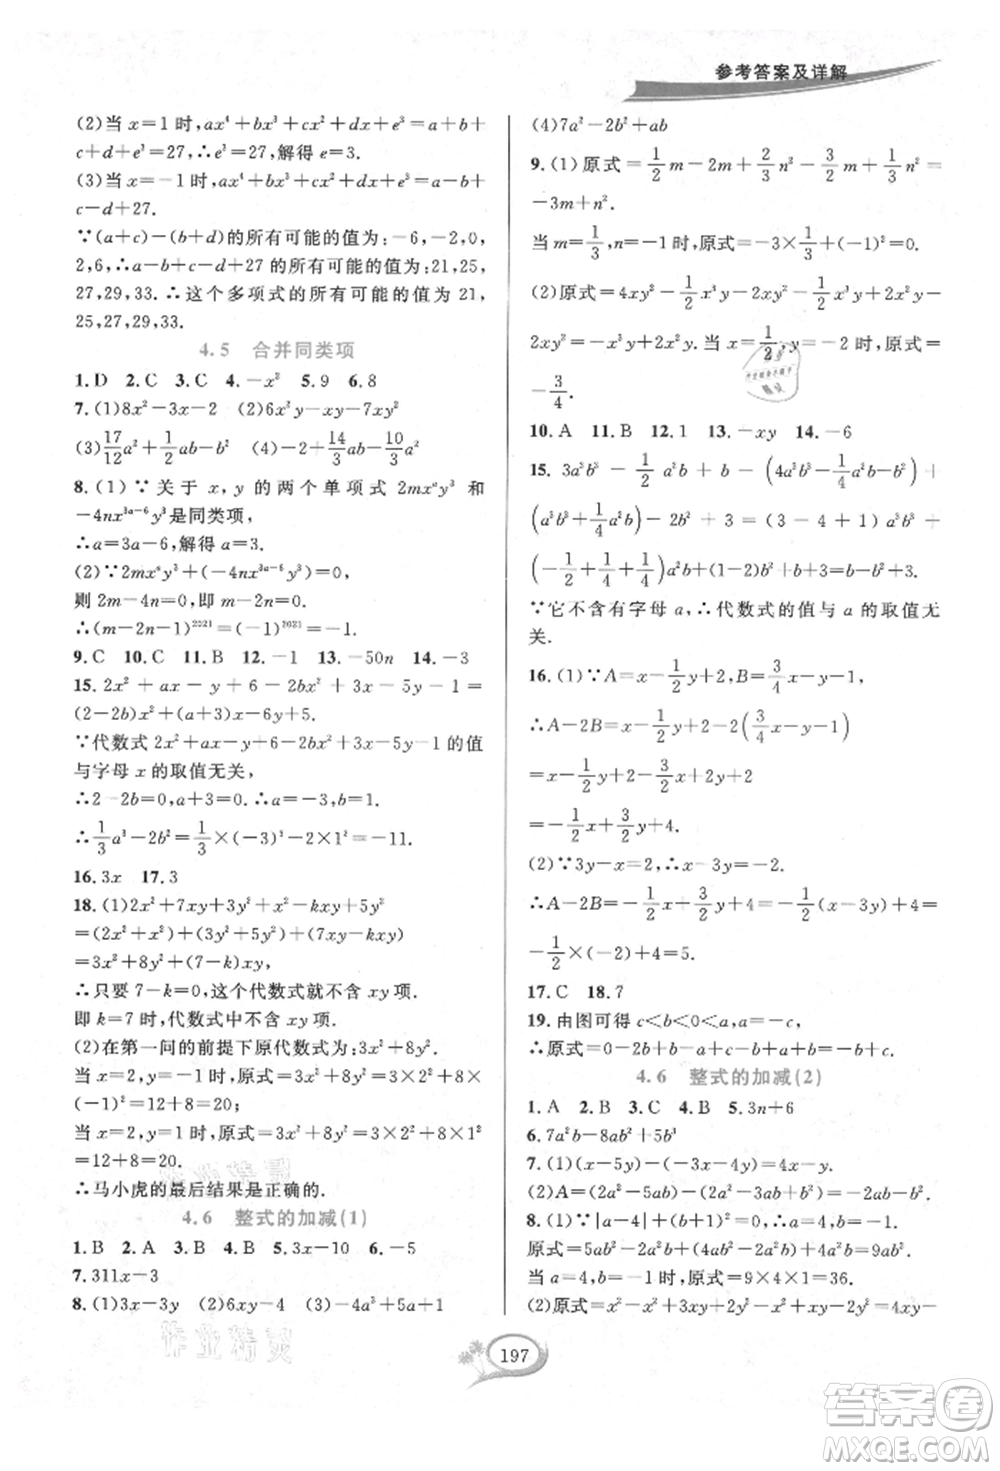 参考答案及详解
(2)当 x=1 时,ax⁴+bx³+cx²+dx+e³=a+b+
c+d+e³=27,∴e³=27,解得 e=3.
(3)当 x=-1 时,ax⁴+bx³+cx²+dx+e³=a-b
+c-d+27.
∵(a+c)-(b+d)的所有可能的值为:-6,-2,0,
2,6,∴a-b+c-d+27 的所有可能的值为:21,25,
27,29,33.∴这个多项式的所有可能的值为 21,
25,27,29,33.
4.5 合并同类项
1.D 2.C 3.C 4.-x² 5.9 6.8
7.(1)8x²-3x-2 (2)6x²y-xy-7xy²
(3)17/12a²+1/2ab-b² (4)-2+14/3ab-10/3a²
8.(1)∵关于 x,y 的两个单项式 2mxᵃy³ 和
-4nx³ᵃ⁻⁶y³是同类项,
∴a=3a-6,解得 a=3.
(2)∵2mxᵃy³+(-4nx³ᵃ⁻⁶y³)=0,
则 2m-4n=0,即 m-2n=0,
∴(m-2n-1)²⁰²¹=(-1)²⁰²¹=-1.
9.C 10.C 11.B 12.-1 13.-50n 14.-3
15.2x²+ax-y+6-2bx²+3x-5y-1=
(2-2b)x²+(a+3)x-6y+5.
∵代数式 2x²+ax-y+6-2bx²+3x-5y-1 的值
与字母 x 的取值无关,
∴2-2b=0,a+3=0.∴a=-3,b=1.
∴1/3a³-2b²=1/3×(-3)³-2×1²=-11.
16.3x 17.3
18.(1)2x²+7xy+3y²+x²-kxy+5y²
=(2x²+x²)+(3y²+5y²)+(7xy-kxy)
=3x²+8y²+(7-k)xy,
∴只要 7-k=0,这个代数式就不含 xy 项.
即 k=7 时,代数式中不含 xy 项.
(2)在第一问的前提下原代数式为:3x²+8y²
当 x=2,y=1 时,原式=3x²+8y²=3×2²+8×
1²=12+8=20;
当 x=2,y=-1 时,原式=3x²+8y²=3×2²+8×1²
=12+8=20.
∴马小虎的最后结果是正确的.
4.6 整式的加减(1)
1.B 2.A 3.B 4.C 5.3x-10 6.-5
7.311x-3
8.(1)3x-3y (2)6xy-4 (3)-4a³+4a+1
(4)7a²-2b²+ab
9.(1)原式=1/2m-2m+2/3n²-3/2m+1/3n²=
-3m+n².
当 m=1/3,n=-1 时,原式=-3×1/3+(-1)²=0.
(2)原式=4xy²-1/2x³y-2xy²-1/4x³y-
2xy²=-3/4x³y.当 x=1/2,y=-2 时,原式=
-3/4.
10.A 11.B 12.1 13.-xy 14.-6
15.3a³b³-1/2a²b+b-(4a³b³-1/4a²b-b²)+
(a³b³+1/4a²b)-2b²+3=(3-4+1)a³b³+
(-1/2+1/4+1/4)a²b+(1-2)b²+b+3=b-b²+3.
∵它不含有字母 a,∴代数式的值与 a 的取值无
关.
16.(1)∵A=x-1/2y+2,B=3/4x-y-1,
∴A-2B=x-1/2y+2-2(3/4x-y-1)
=x-1/2y+2-3/2x+2y+2
=-1/2x+3/2y+4.
(2)∵3y-x=2,∴x-3y=-2.
∴A-2B=-1/2x+3/2y+4=-1/2(x-3y)+4=
-1/2×(-2)+4=5.
17.C 18.7
19.由图可得 c<b<0<a,a=-c,
∴原式=0-2b+b-a+c-b+a=c-2b.
4.6 整式的加减(2)
1.A 2.B 3.C 4.B 5.3n+6
6.7a²b-8ab²+5b³
7.(1)(x-5y)-(-3x+4y)=4x-9y.
8.(1)∵|a-4|+(b+1)²=0,∴a=4,b=-1;
原式=5ab²-2a²b+(4a²b-2a²b)+4ab²=9ab².
当 a=4,b=-1时,原式=9×4×1=36.
197
答案卷
MXQE.COM
作业精灵